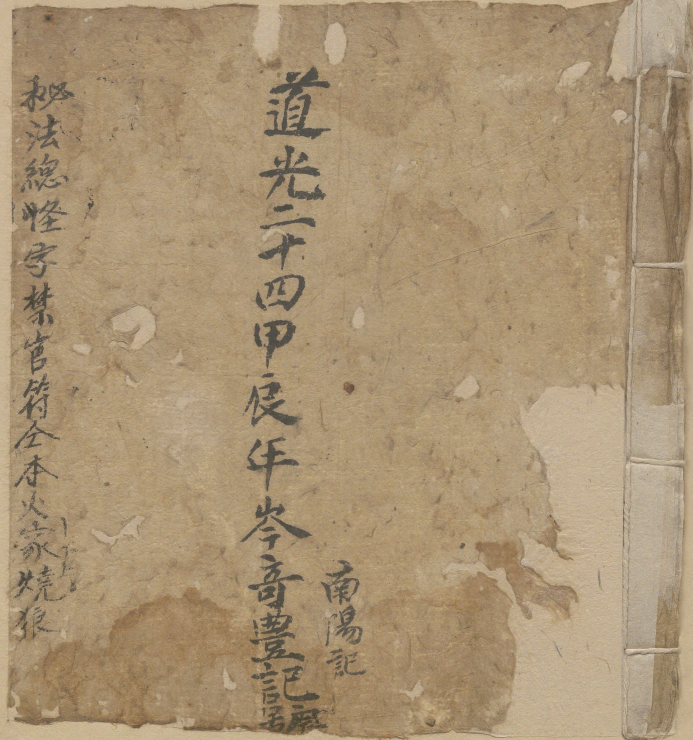 南陽記
道光二十四甲辰年岑奇豊記號
秘法總怪字禁官符仝本火家燒狼